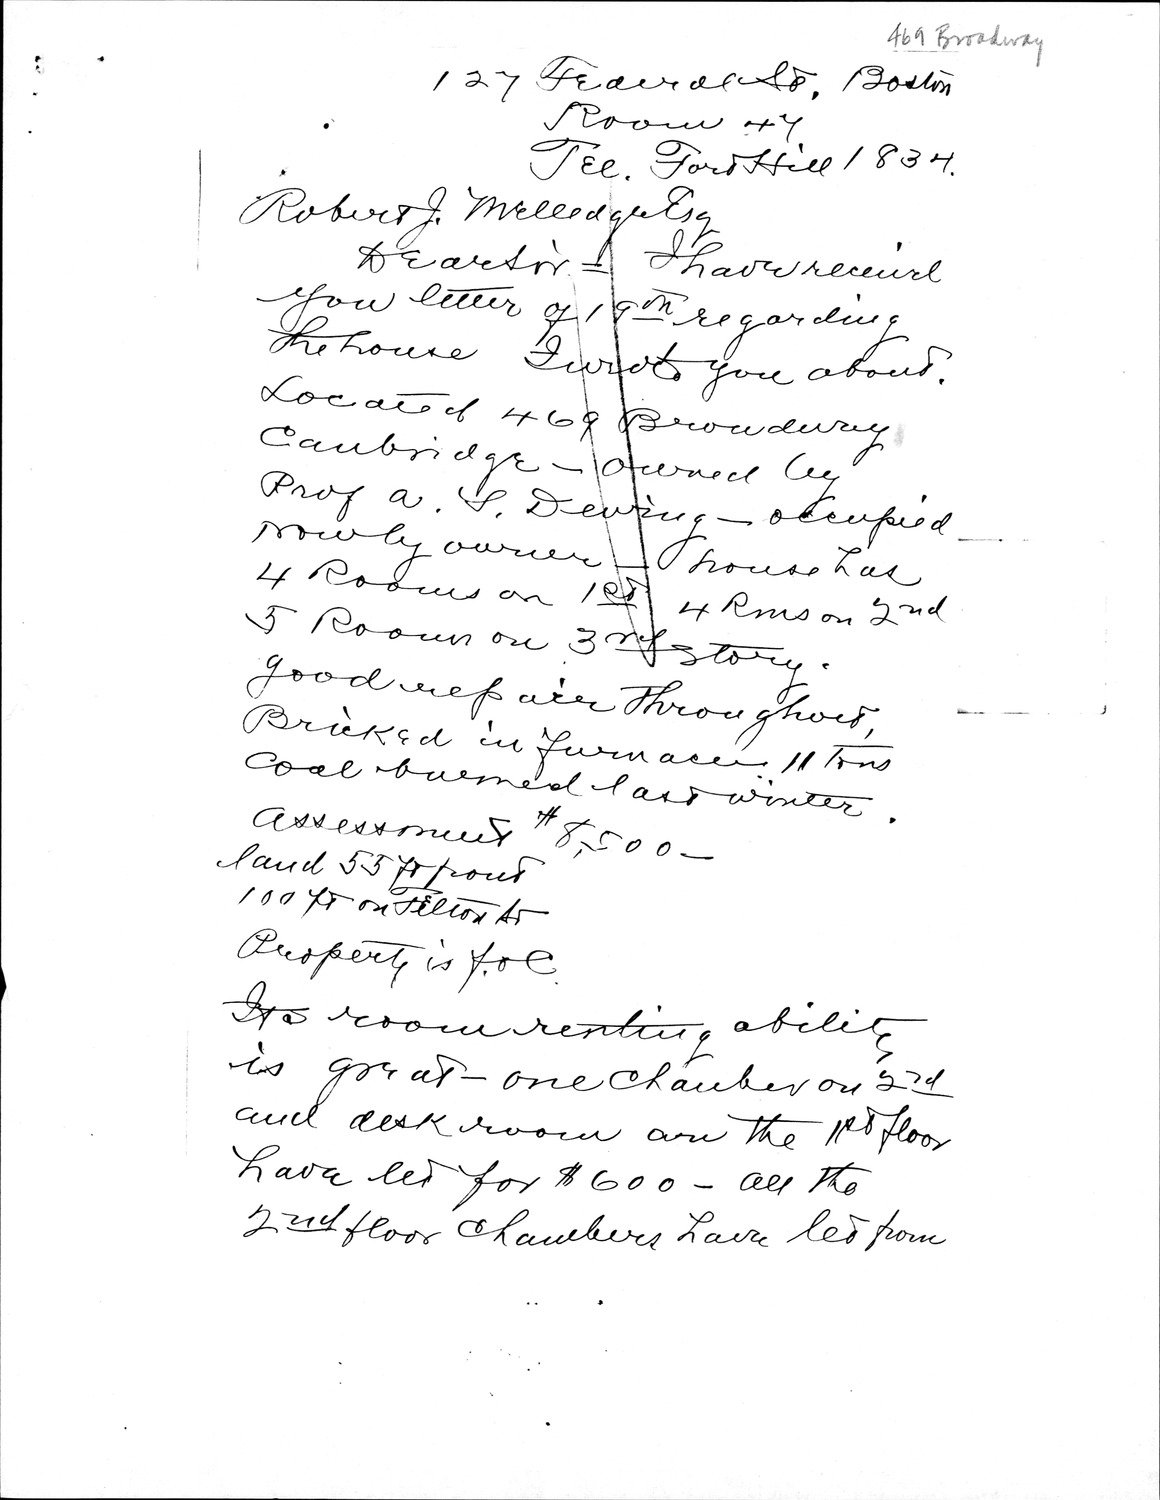 469 Broadway
127 Federal St, Boston
Room 47
Tel. Fort Hill 1834.
Robert J. Melledge Esq
Dear Sir - I have received
you letter of 19th regarding
the house I wrote you about.
Located 469 Broadway
Cambridge - owned by
Prof A. S. Dewing - occupied
now by owner - house has
4 Rooms on 1st 4 Rms on 2nd
5 Rooms on 3rd story.
good repair throughout,
Bricked in furnace 11 tons
coal burned last winter.
Assessment $8,500 -
land 55 ft front
100 ft on Felton St
Property is f.o.c.
Its room renting ability
is great - one chamber on 2nd
and desk room on the 1st floor
have let for $600 - all the
2nd floor chambers have let from